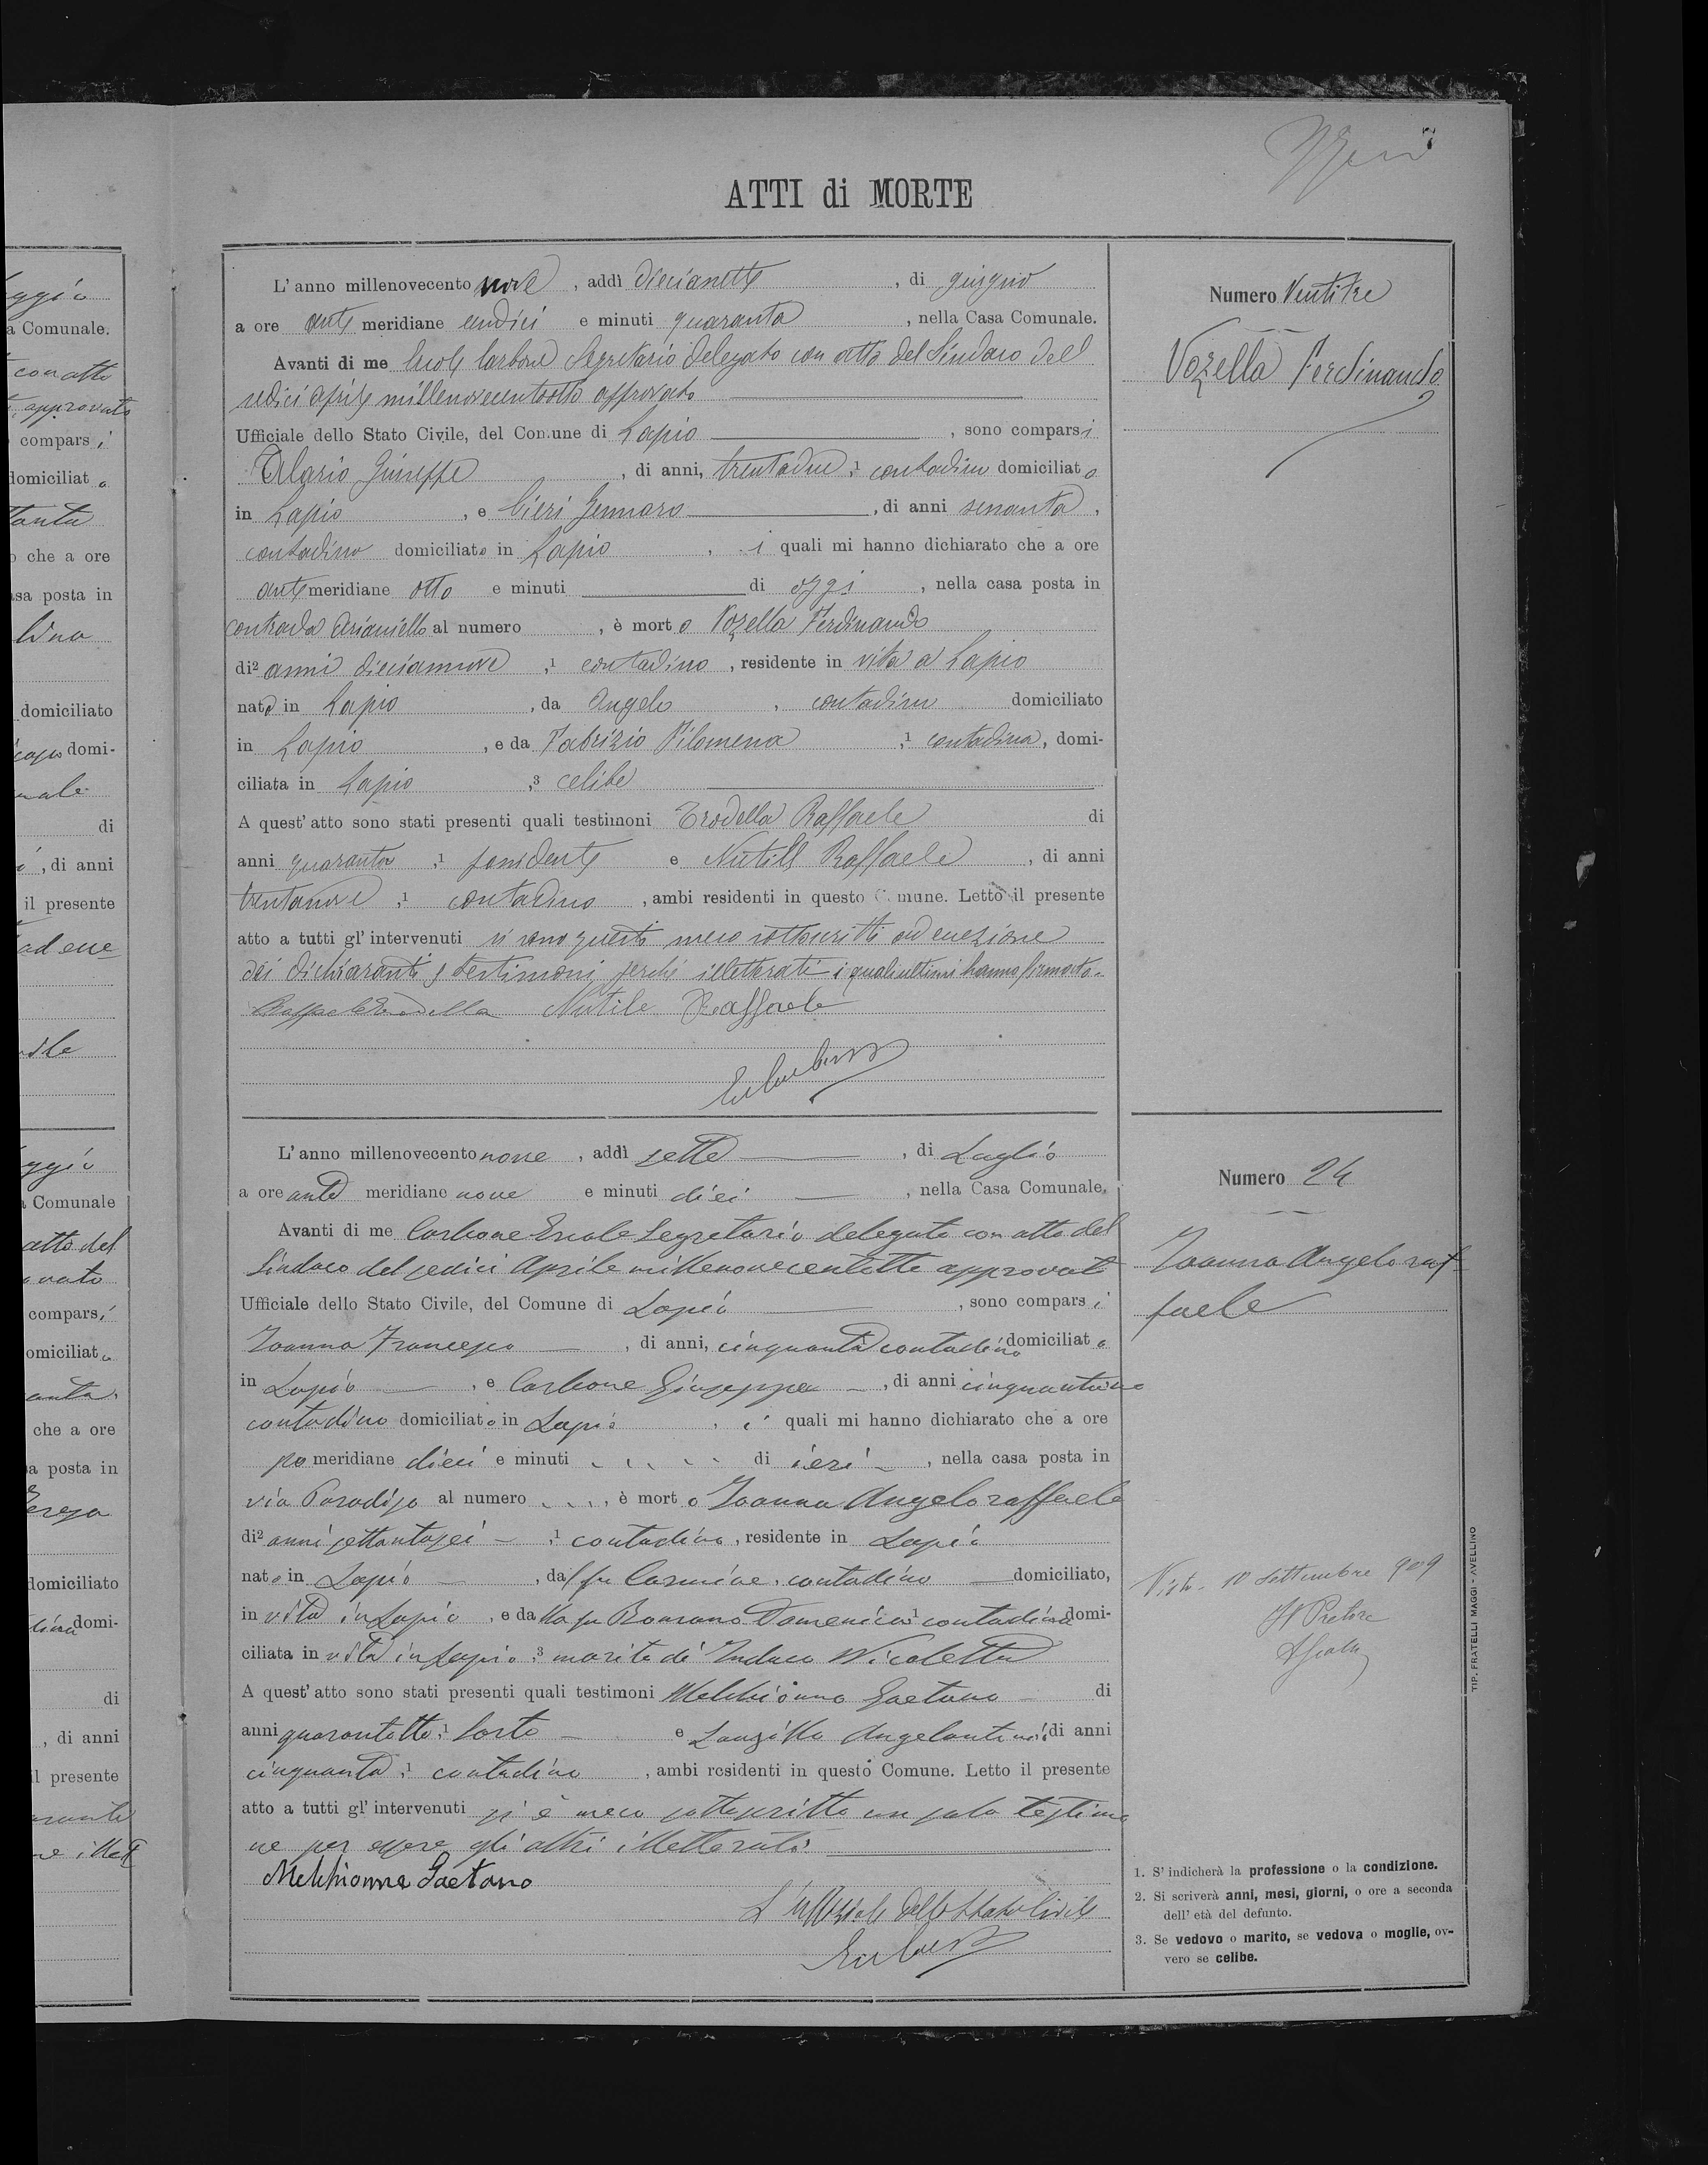 7
ATTI di MORTE
L' anno millenovecento nove, addì diecianette, di giugno
a ore ante meridiane undici e minuti quaranta, nella Casa Comunale.
Avanti di me Ercole Carbone Segretario delegato con atto del Sindaco del
sedici aprile millenovecentootto approvato
Ufficiale dello Stato Civile, del Comune di Lapio, sono comparsi
Ilario Giuseppe, di anni, trentadue,¹ contadino domiciliato
in Lapio, e Cieri Gennaro, di anni sessanta,
contadino domiciliato in Lapio, i quali mi hanno dichiarato che a ore
ante meridiane otto e minuti di oggi, nella casa posta in
contrada Arianiello al numero, è morto Vozella Ferdinando
di² anni diecianove,¹ contadino, residente in vita a Lapio
nato in Lapio, da Angelo, contadino domiciliato
in Lapio, e da Fabrizio Filomena,¹ contadina, domi-
ciliata in Lapio,³ celibe
A quest' atto sono stati presenti quali testimoni Trodella Raffaele di
anni quaranta,¹ possidente e Nutile Raffaele, di anni
trentanove,¹ contadino, ambi residenti in questo Comune. Letto il presente
atto a tutti gl' intervenuti si sono questi meco sottoscritti ad eccezione
dei dichiaranti e testimoni perché illetterati i quali ultimi hanno firmato.
Raffaele Trodella Nutile Raffaele
Numero Ventitre
Vozella Ferdinando
L' anno millenovecento nove, addì sette, di Luglio
a ore ante meridiane nove e minuti dieci, nella Casa Comunale.
Avanti di me Carbone Ercole Segretario delegato con atto del
Sindaco del sedici Aprile millenovecentotto approvato
Ufficiale dello Stato Civile, del Comune di Lapio, sono comparsi
Ioanna Francesco, di anni, cinquanta contadino domiciliato
in Lapio, e Carbone Giuseppe, di anni cinquantuno
contadino domiciliato in Lapio, i quali mi hanno dichiarato che a ore
pomeridiane dieci e minuti di ieri, nella casa posta in
via Paradiso al numero, è morto Ioanna Angeloraffaele
di² anni settantasei,¹ contadino, residente in Lapio
nato in Lapio, dal fu Carmine, contadino domiciliato,
in vita in Lapio, e dalla fu Romano Domenica¹ contadina domi-
ciliata in vita in Lapio,³ marito di Indaco Nicoletta
A quest' atto sono stati presenti quali testimoni Melchionna Gaetano di
anni quarantotto,¹ sarto e Lanzilla Angelantonio, di anni
cinquanta,¹ contadino, ambi residenti in questo Comune. Letto il presente
atto a tutti gl' intervenuti si è meco sottoscritto un solo testimo
ne per essere gli altri illetterati
Melchionna Gaetano
L'Uffiziale dello Stato Civile
Numero 24
Ioanna Angeloraf
faele
Visto. 10 Settembre 909
Il Pretore
1. S' indicherà la professione o la condizione.
2. Si scriverà anni, mesi, giorni, o ore a seconda
dell' età del defunto.
3. Se vedovo o marito, se vedova o moglie, ov-
vero se celibe.
TIP. FRATELLI MAGGI - AVELLINO